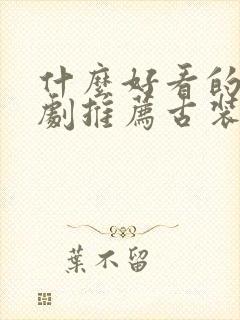 什麼好看的
劇推薦古裝
葉不留